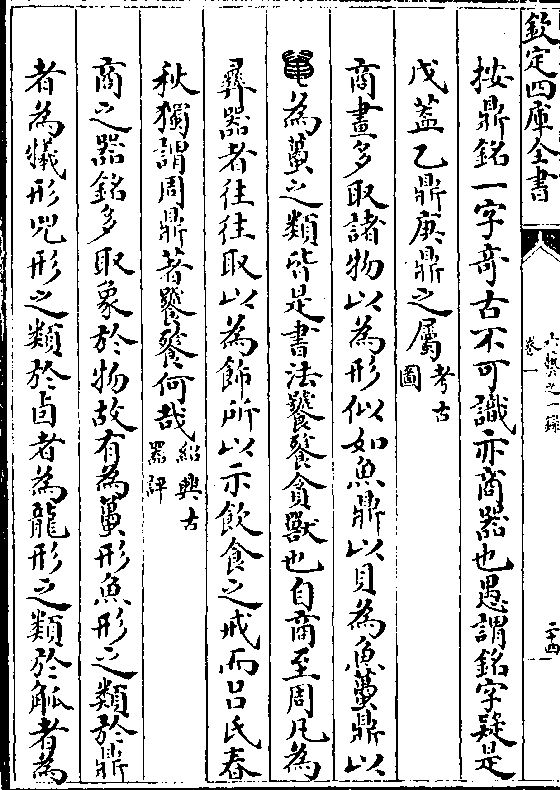 欽定四庫全書
卷一
二十四
按鼎銘一字奇古不可識亦商器也愚謂銘字疑是
戊蓋乙鼎庚鼎之屬考古圖
商畫多取諸物以為形似如魚鼎以貝為魚蠆鼎以
為蠆之類皆是書法饕餮貪獸也自商至周凡為
彞器者往往取以為飾所以示飲食之戒而吕氏春
秋獨謂周鼎著饕餮何哉紹興古器評
商之器銘多取象於物故有為蠆形魚形之類於鼎
者為犧形兕形之類於卣者為龍形之類於觚者為